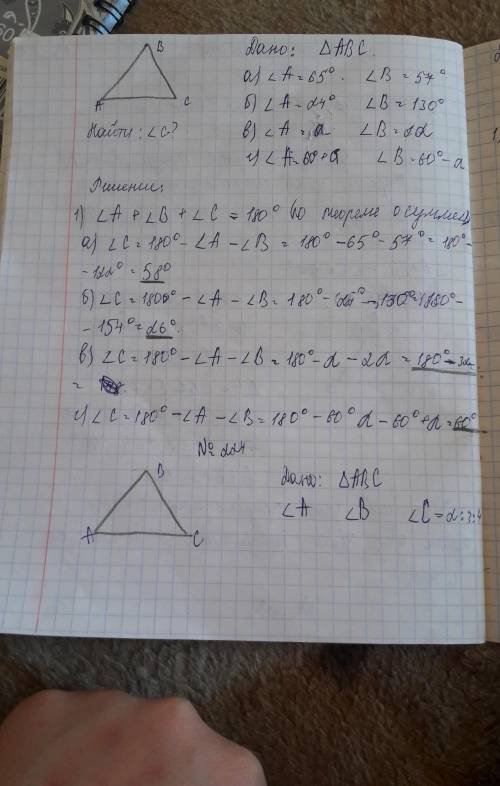 B
Дано: △ABC.
а) ∠A = 65°. ∠B = 57°
A C
б) ∠A = 24° ∠B = 130°
Найти: ∠C?
в) ∠A = α ∠B = 2α
г) ∠A = 60° + α ∠B = 60° - α
Решение:
1) ∠A + ∠B + ∠C = 180° (по теореме о сумме
а) ∠C = 180° - ∠A - ∠B = 180° - 65° - 57° = 180° -
- 122° = 58°
б) ∠C = 180° - ∠A - ∠B = 180° - 24° - 130° = 180° -
- 154° = 26°.
в) ∠C = 180° - ∠A - ∠B = 180° - α - 2α = 180° - 3α
=
г) ∠C = 180° - ∠A - ∠B = 180° - 60° α - 60° + α = 60°
№ 224.
B
Дано: △ABC
∠A ∠B ∠C = 2:3:4
A C